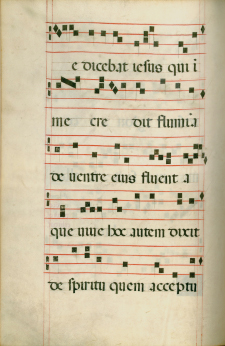 e dicebat iesus qui i
me ere dit flumia
de uentre eius fluent a
que uiue hoc autem dixit
de spiritu quem acceptu